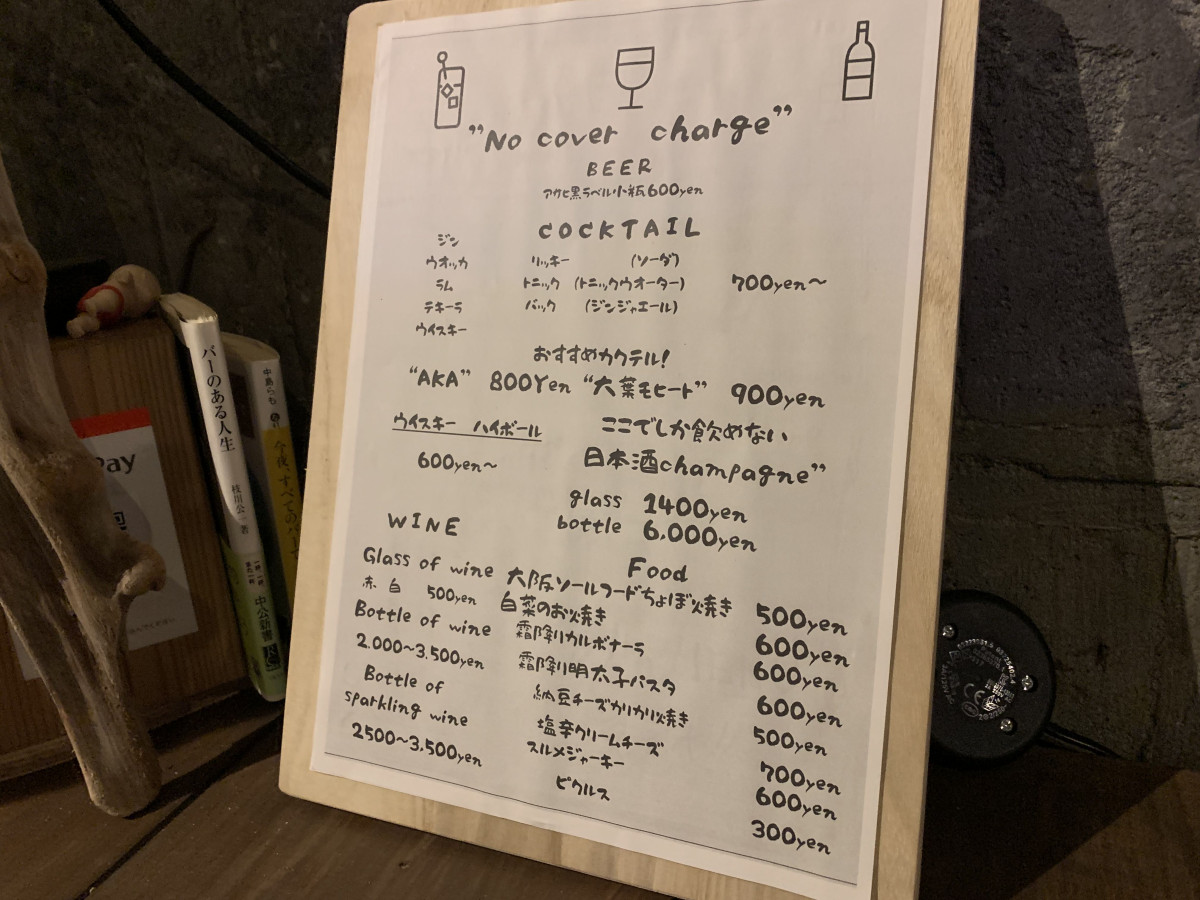 "No cover charge"
BEER
アサヒ黒ラベル小瓶600yen
COCKTAIL
ジン
ウオッカ リッキー (ソーダ)
ラム トニック (トニックウオーター) 700yen〜
テキーラ バック (ジンジャエール)
ウイスキー
おすすめカクテル!
"AKA" 800Yen "大葉モヒート" 900yen
ウイスキー ハイボール
600yen〜
ここでしか飲めない
日本酒champagne"
glass 1400yen
bottle 6,000yen
WINE
Glass of wine
赤 白 500yen
Bottle of wine
2.000〜3.500yen
Bottle of
sparkling wine
2500〜3,500yen
Food
大阪ソールフードちょぼ焼き 500yen
白菜のお焼き 600yen
霜降りカルボナーラ 600yen
霜降り明太子パスタ 600yen
納豆チーズカリカリ焼き 500yen
塩辛クリームチーズ 700yen
スルメジャーキー 600yen
ピクルス 300yen
バーのある人生
枝川公一 著
中公新書
中島らも
今夜、すべてのバーで
Pay